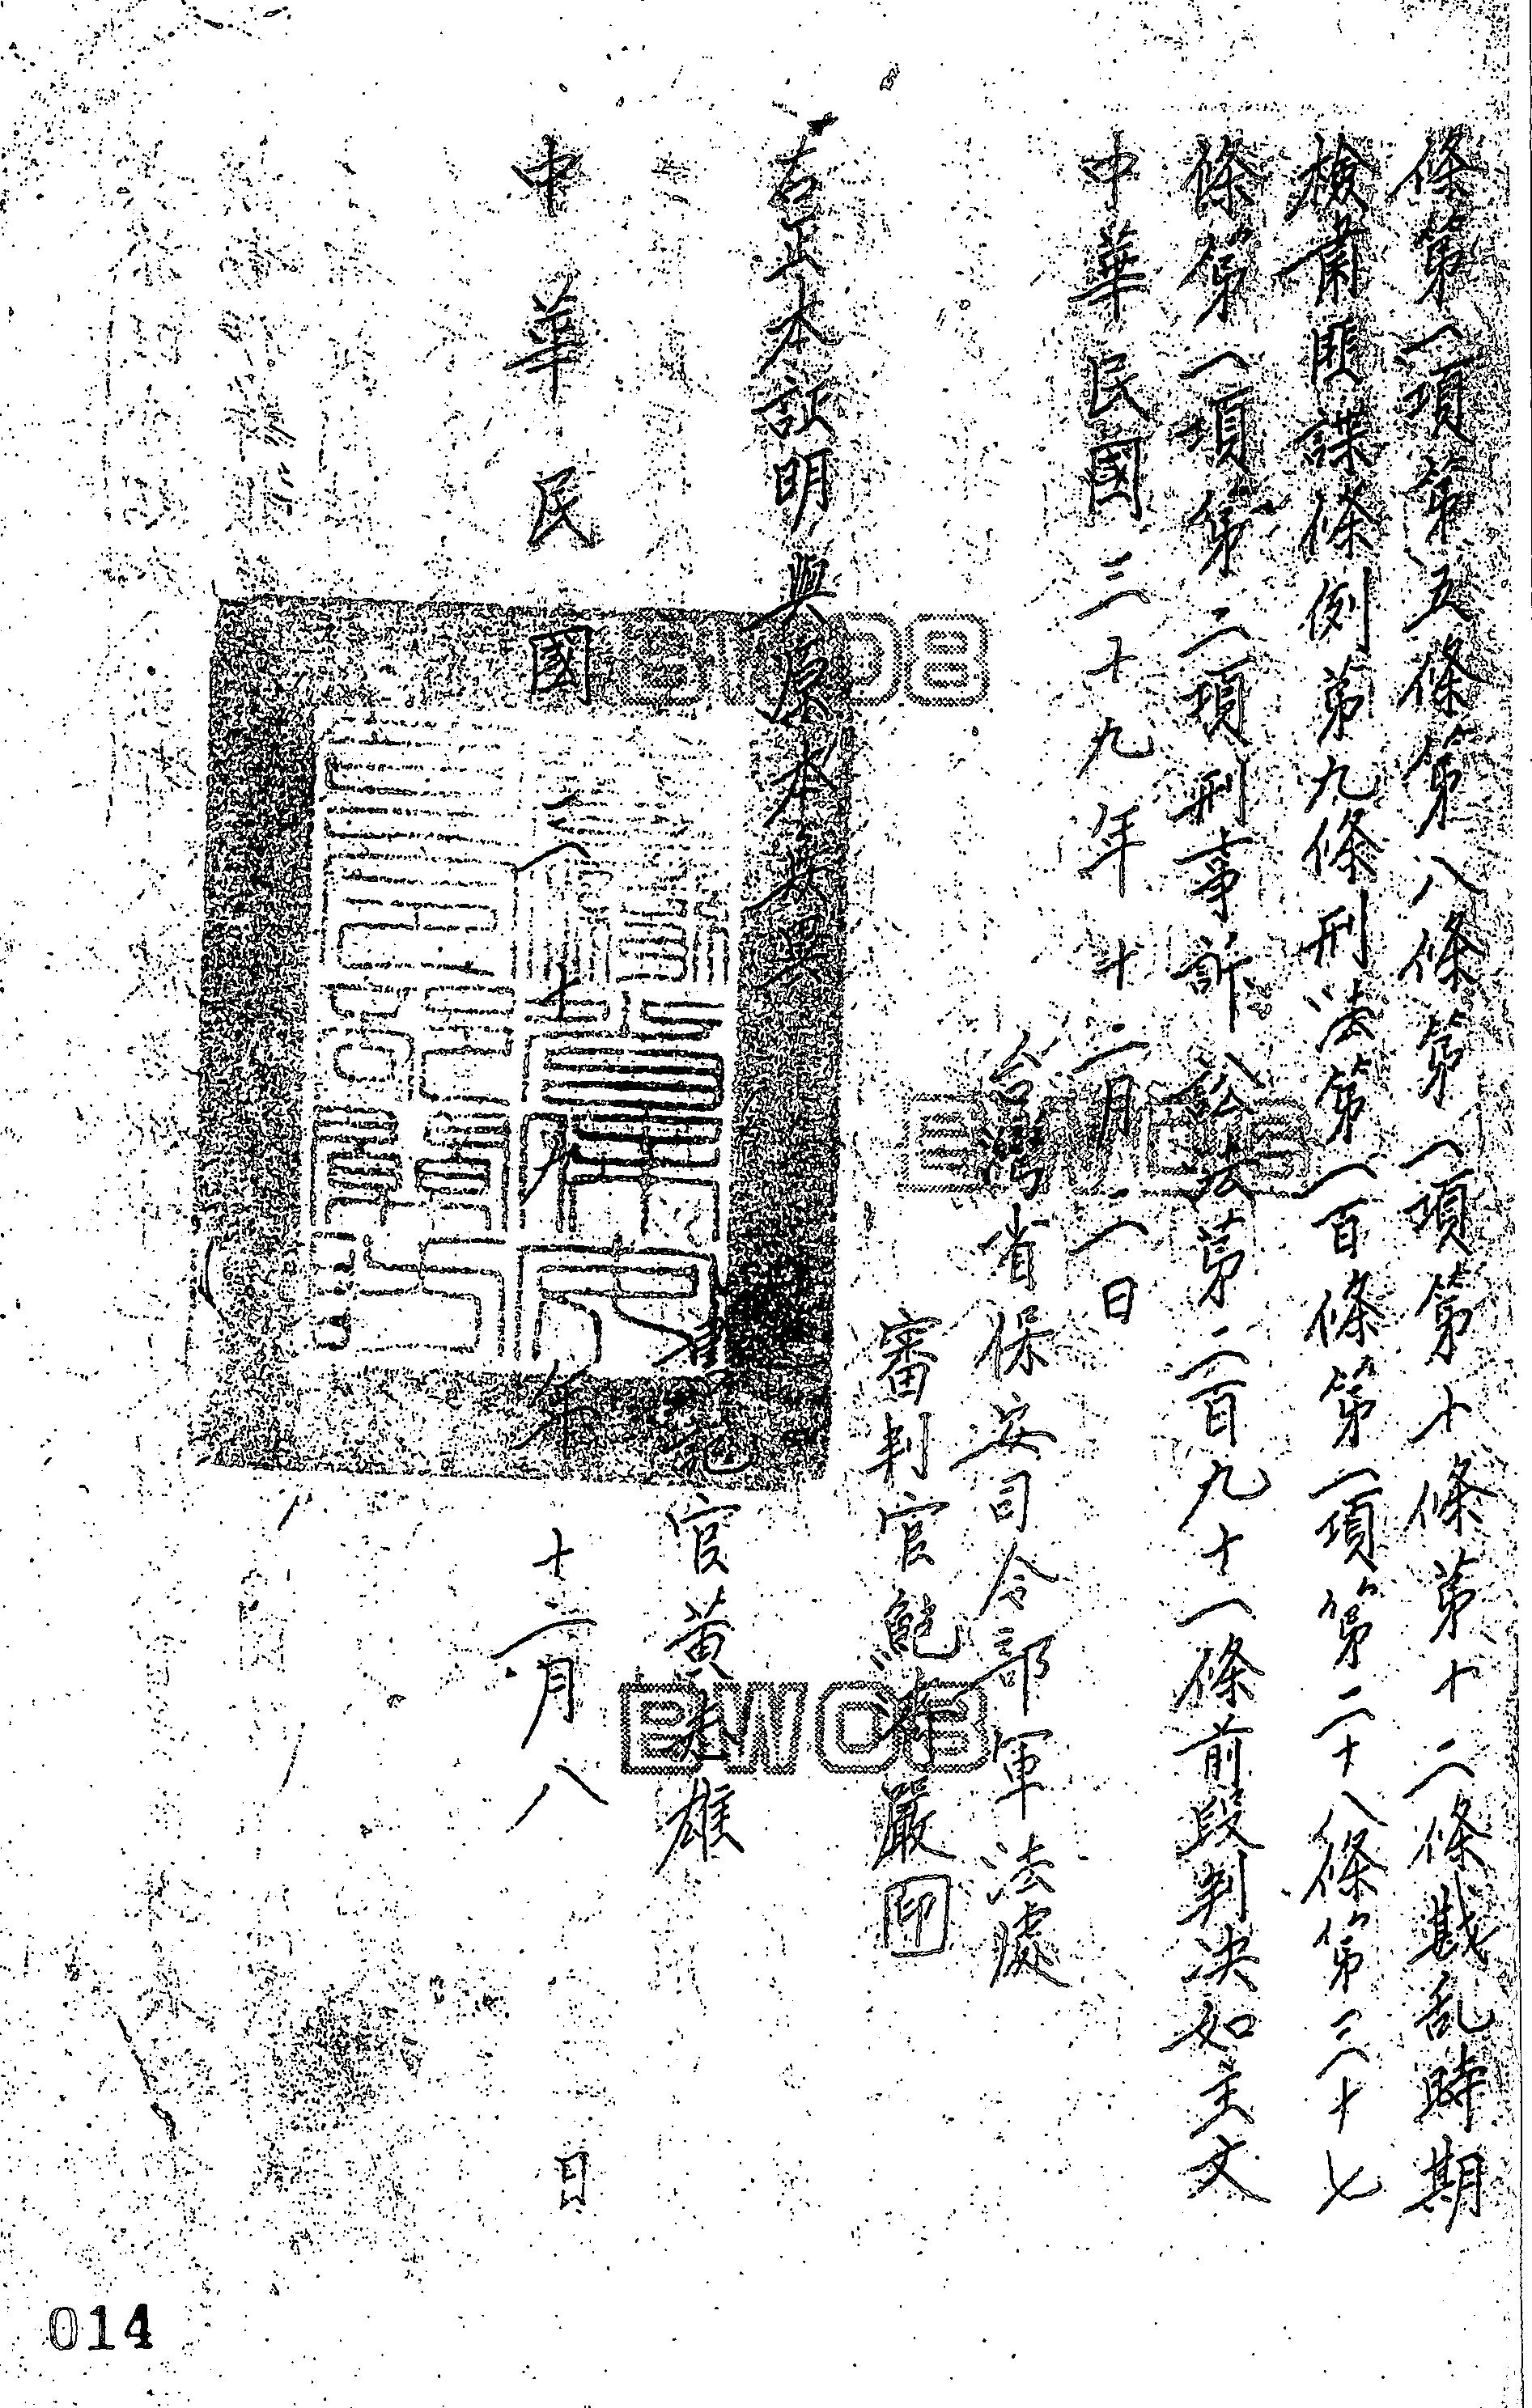 條第一項第五條第八條第一項第十條第十二條戡乱時期
檢肅匪諜條例第九條刑法第一百條第一項第二十八條第三十七
條第一項第二項刑事訴訟法第二百九十一條前段判決如主文
中華民國三十九年十二月二日
台灣省保安司令部軍法處
審判官 嚴印
右正本証明與原本無異
書記官黃 雄
中華民國三十九年十二月八日
BWCB
BWCB
014